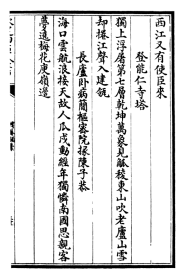 西江又有使臣來
登能仁寺塔
獨上浮屠第七層乾坤萬象見觚稜東山吹老廬山雪
却捲江聲入建瓴
長蘆卧病簡樞密院掾陳子恭
海口雲航浪接天故人瓜戍動經年獨憐南國思親客
夢遶梅花庾嶺邊